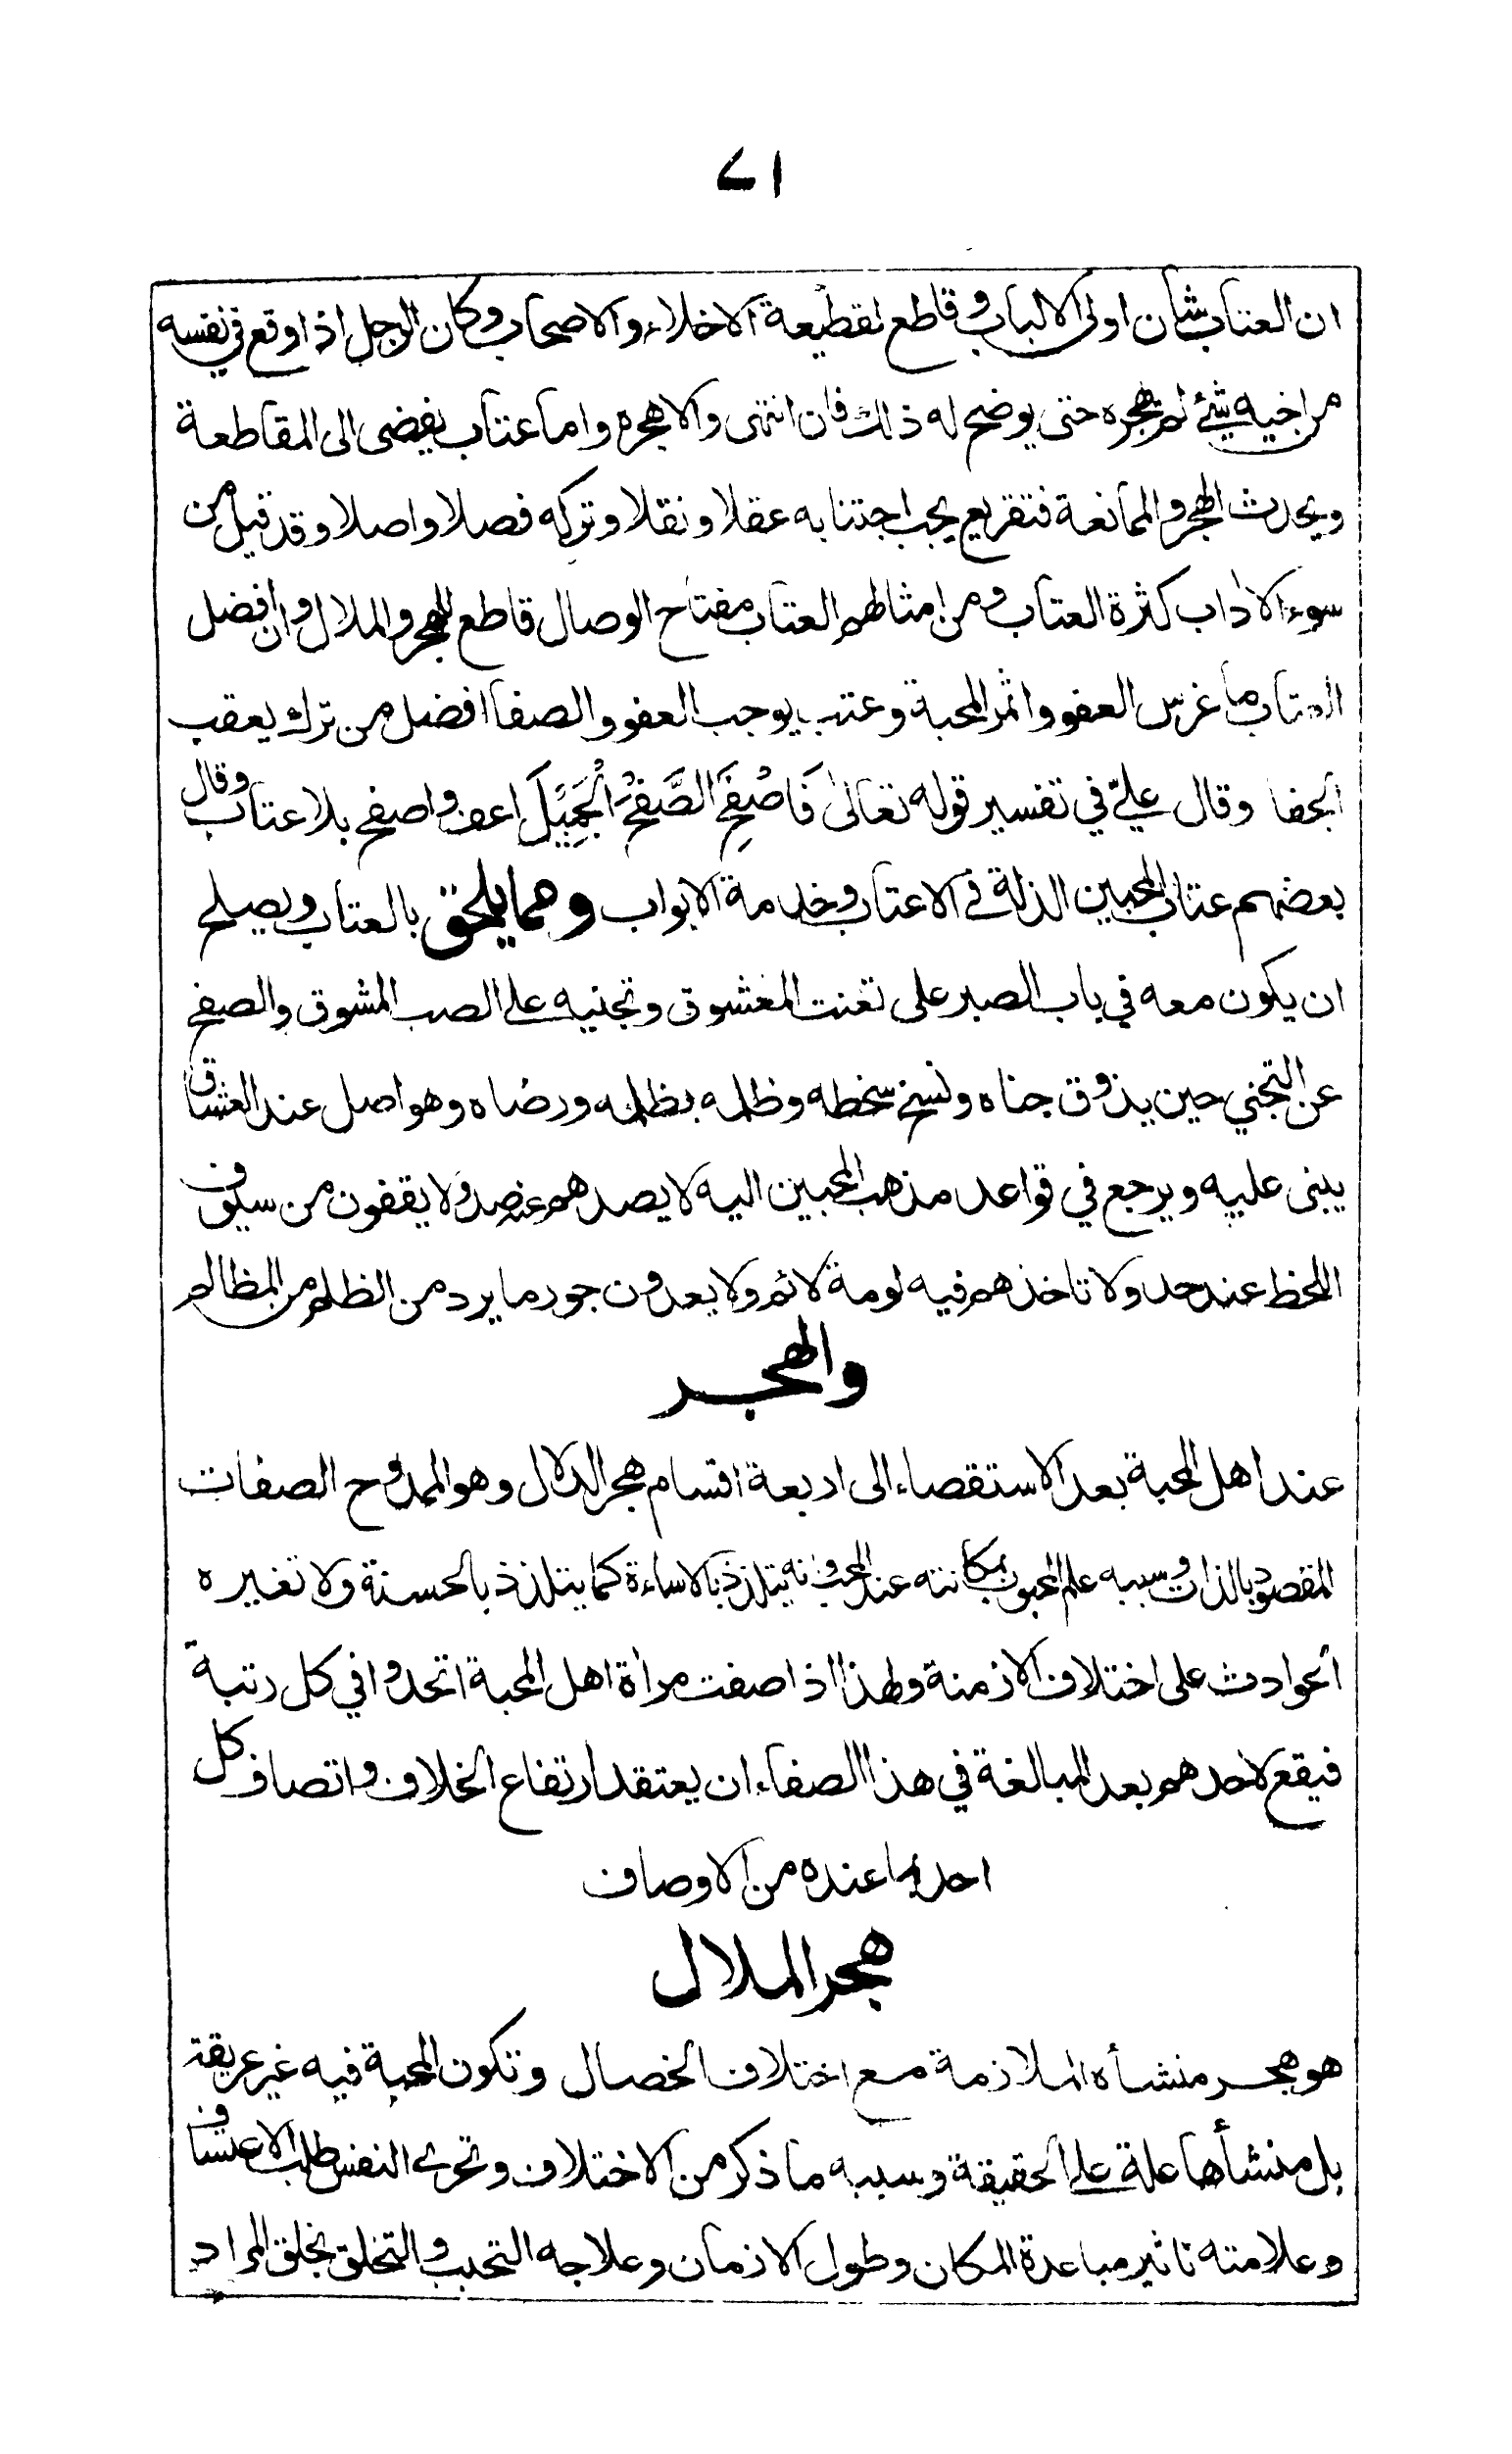 ٧١
ان العتاب شان اولى الالباب وقاطع لقطيعة الاخلاء والاصحاب وكان الرجل اذا وقع في نفسه
من اخيه شيئ لم يهجره حتى يوضح له ذلك فان انتهى والا هجره واما عتاب يفضى الى المقاطعة
ويحدث الهجر والممانعة فتقريع يجب اجتنابه عقلا ونقلا وتركه فصلا واصلا وقد قيل من
سوء الاداب كثرة العتاب ومن امثالهم العتاب مفتاح الوصال قاطع للهجر والملال وان افضل
العتاب ما غرس العفو واثمر المحبة وعتب يوجب العفو والصفا افضل من ترك يعقب
الجفا وقال علي في تفسير قوله تعالى فَاصْفَحِ الصَّفْحَ الْجَمِيْلَ اعف واصفح بلا عتاب وقال
بعضهم عتاب المحبين الذلة في الاعتاب وخدمة الابواب ومما يلحق بالعتاب ويصلح
ان يكون معه في باب الصبر على تعنت المعشوق وتجنيه على الصب المشوق والصفح
عن التجني حين يذوق جناه ونسخ سخطه وظلمه بظلمه ورضاه وهو اصل عند العشاق
يبنى عليه ويرجع في قواعد مذهب المحبين اليه لا يصدهم عنه صد ولا يقفون من سيوف
اللحظ عند حد ولا تاخذهم فيه لومة لائم ولا يعدون جور ما يرد من الظلم من المظالم
والهجر
عند اهل المحبة بعد الاستقصاء الى اربعة اقسام هجر الدلال وهو الممدوح الصفات
المقصود بالذات وسببه علم المحبوب بمكانته عند المحب وانه يتلذذ بالاساءة كما يتلذذ بالحسنة ولا تغيره
الحوادث على اختلاف الازمنة ولهذا اذا صفت مرأة اهل المحبة اتحدوا في كل رتبة
فيقع لاحدهم بعد المبالغة في هذا الصفاء ان يعتقد ارتفاع الخلاف واتصاف كل
احد بما عنده من الاوصاف
هجر الملال
هو هجر منشأه الملازمة مع اختلاف الخصال وتكون المحبة فيه غير عريقة
بل منشأها علة على الحقيقة وسببه ما ذكر من الاختلاف وتحرى النفس طلب الاعتساف
وعلامته تاثير مباعدة المكان وطول الازمان وعلاجه التحبب والتخلق بخلق المراد